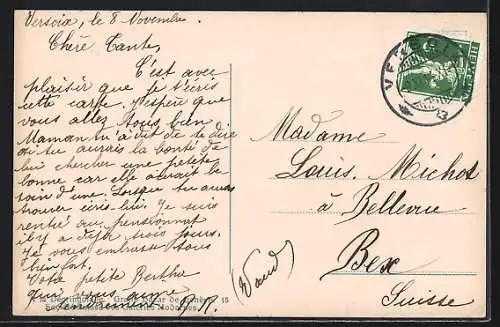 Versoix, le 8 Novembre.
Chère Tante,
C'est avec
plaisir que je t'écris
cette carte. J'espère que
vous allez tous bien
Maman m'a dit de te dire
si tu aurais la bonté de
lui chercher une petite
bonne car elle aurait
soin d'une. Lorsque tu auras
trouver écris-lui. Je suis
rentré au pensionnat
il y a déjà trois jours.
Je vous embrasse tous
bien fort.
Votre petite Berthe
qui vous aime
tendrement
Madame
Louis Michot
à Bellevue
Bex
(Vaud)
Suisse
HELVETIA